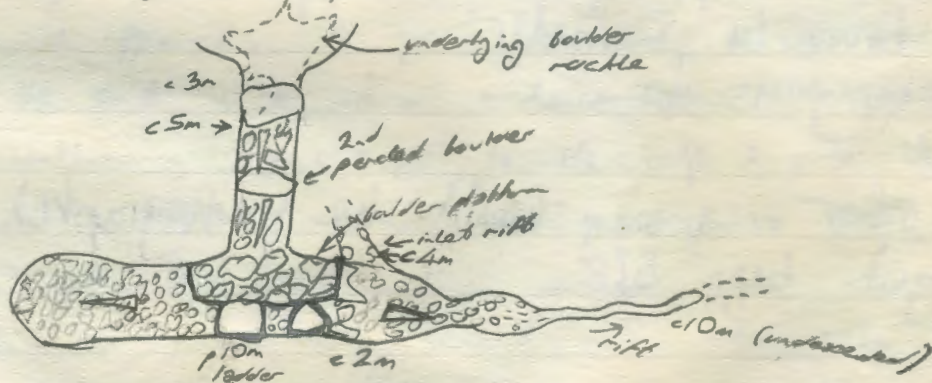 underlying boulder
ruckle
c3m
c5m →
2nd
perched boulder
boulder platform
inlet rift
c4m
p10m
ladder
c2m
→
rift
c10m (undescended)